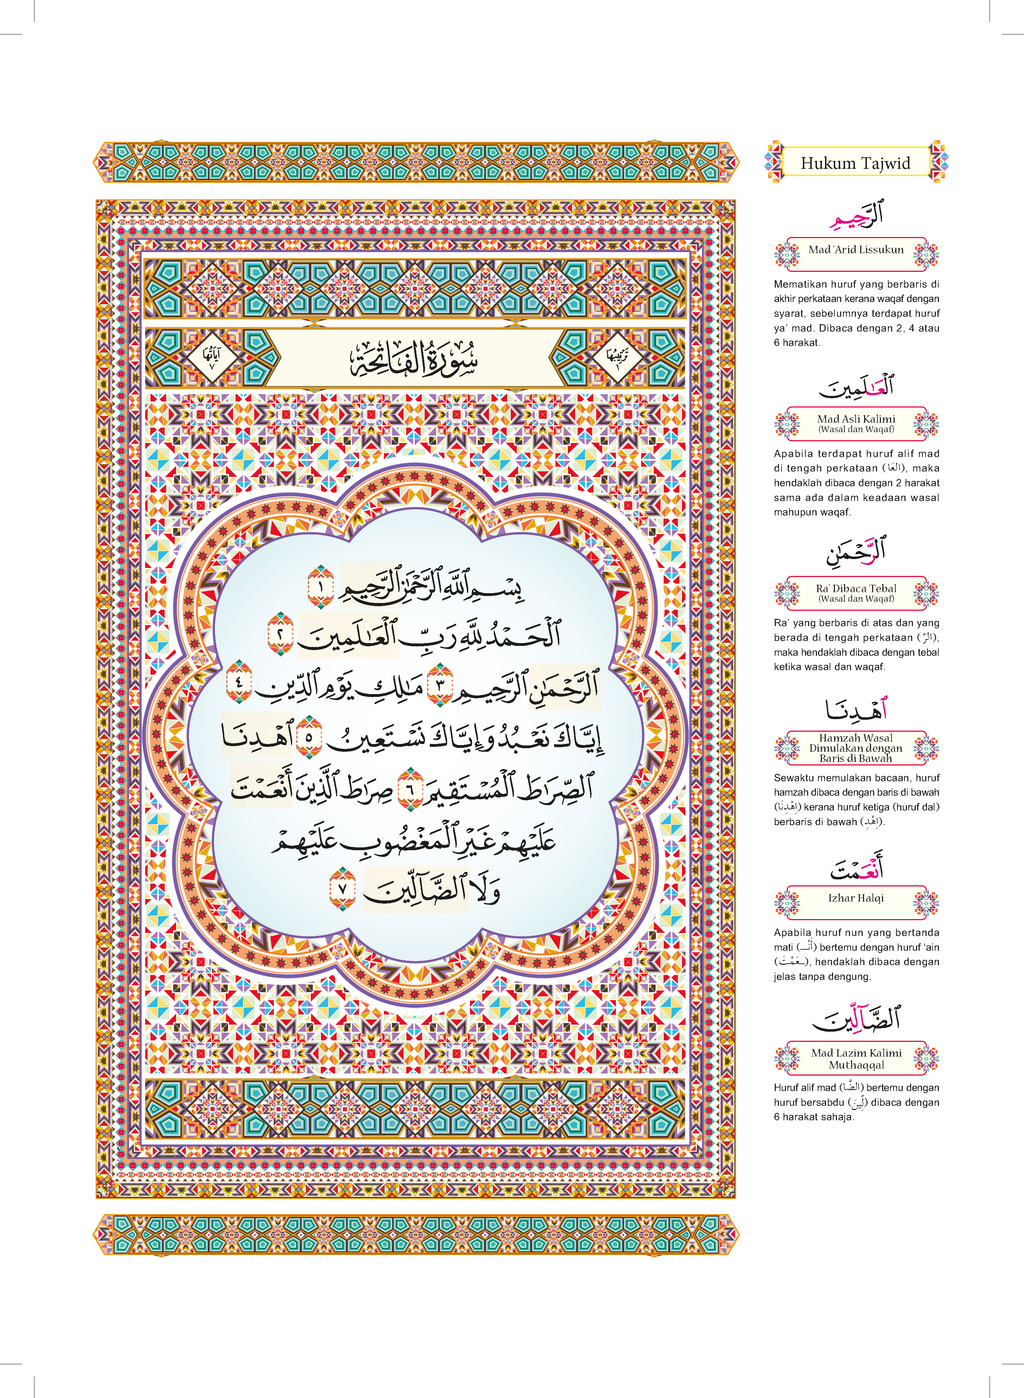 سُورَةُ الفَاتِحَةِ
تَرْتِيبُهَا
١
آيَاتُهَا
٧
بِسْمِ ٱللَّهِ ٱلرَّحْمَٰنِ ٱلرَّحِيمِ ١
ٱلْحَمْدُ لِلَّهِ رَبِّ ٱلْعَـٰلَمِينَ ٢
ٱلرَّحْمَٰنِ ٱلرَّحِيمِ ٣ مَـٰلِكِ يَوْمِ ٱلدِّينِ ٤
إِيَّاكَ نَعْبُدُ وَإِيَّاكَ نَسْتَعِينُ ٥ ٱهْدِنَا
ٱلصِّرَٰطَ ٱلْمُسْتَقِيمَ ٦ صِرَٰطَ ٱلَّذِينَ أَنْعَمْتَ
عَلَيْهِمْ غَيْرِ ٱلْمَغْضُوبِ عَلَيْهِمْ
وَلَا ٱلضَّآلِّينَ ٧
Hukum Tajwid
ٱلرَّحِيمِ
Mad ‘Arid Lissukun
Mematikan huruf yang berbaris di
akhir perkataan kerana waqaf dengan
syarat, sebelumnya terdapat huruf
ya’ mad. Dibaca dengan 2, 4 atau
6 harakat.
ٱلْعَـٰلَمِينَ
Mad Asli Kalimi
(Wasal dan Waqaf)
Apabila terdapat huruf alif mad
di tengah perkataan (الْعَا), maka
hendaklah dibaca dengan 2 harakat
sama ada dalam keadaan wasal
mahupun waqaf.
ٱلرَّحْمَٰنِ
Ra’ Dibaca Tebal
(Wasal dan Waqaf)
Ra’ yang berbaris di atas dan yang
berada di tengah perkataan (الرَّ),
maka hendaklah dibaca dengan tebal
ketika wasal dan waqaf.
ٱهْدِنَا
Hamzah Wasal
Dimulakan dengan
Baris di Bawah
Sewaktu memulakan bacaan, huruf
hamzah dibaca dengan baris di bawah
(اِهْدِنَا) kerana huruf ketiga (huruf dal)
berbaris di bawah (اِهْدِ).
أَنْعَمْتَ
Izhar Halqi
Apabila huruf nun yang bertanda
mati (أَنْـ) bertemu dengan huruf ‘ain
(ـعَمْتَ), hendaklah dibaca dengan
jelas tanpa dengung.
ٱلضَّآلِّينَ
Mad Lazim Kalimi
Muthaqqal
Huruf alif mad (الضَّآ) bertemu dengan
huruf bersabdu (لِّينَ) dibaca dengan
6 harakat sahaja.